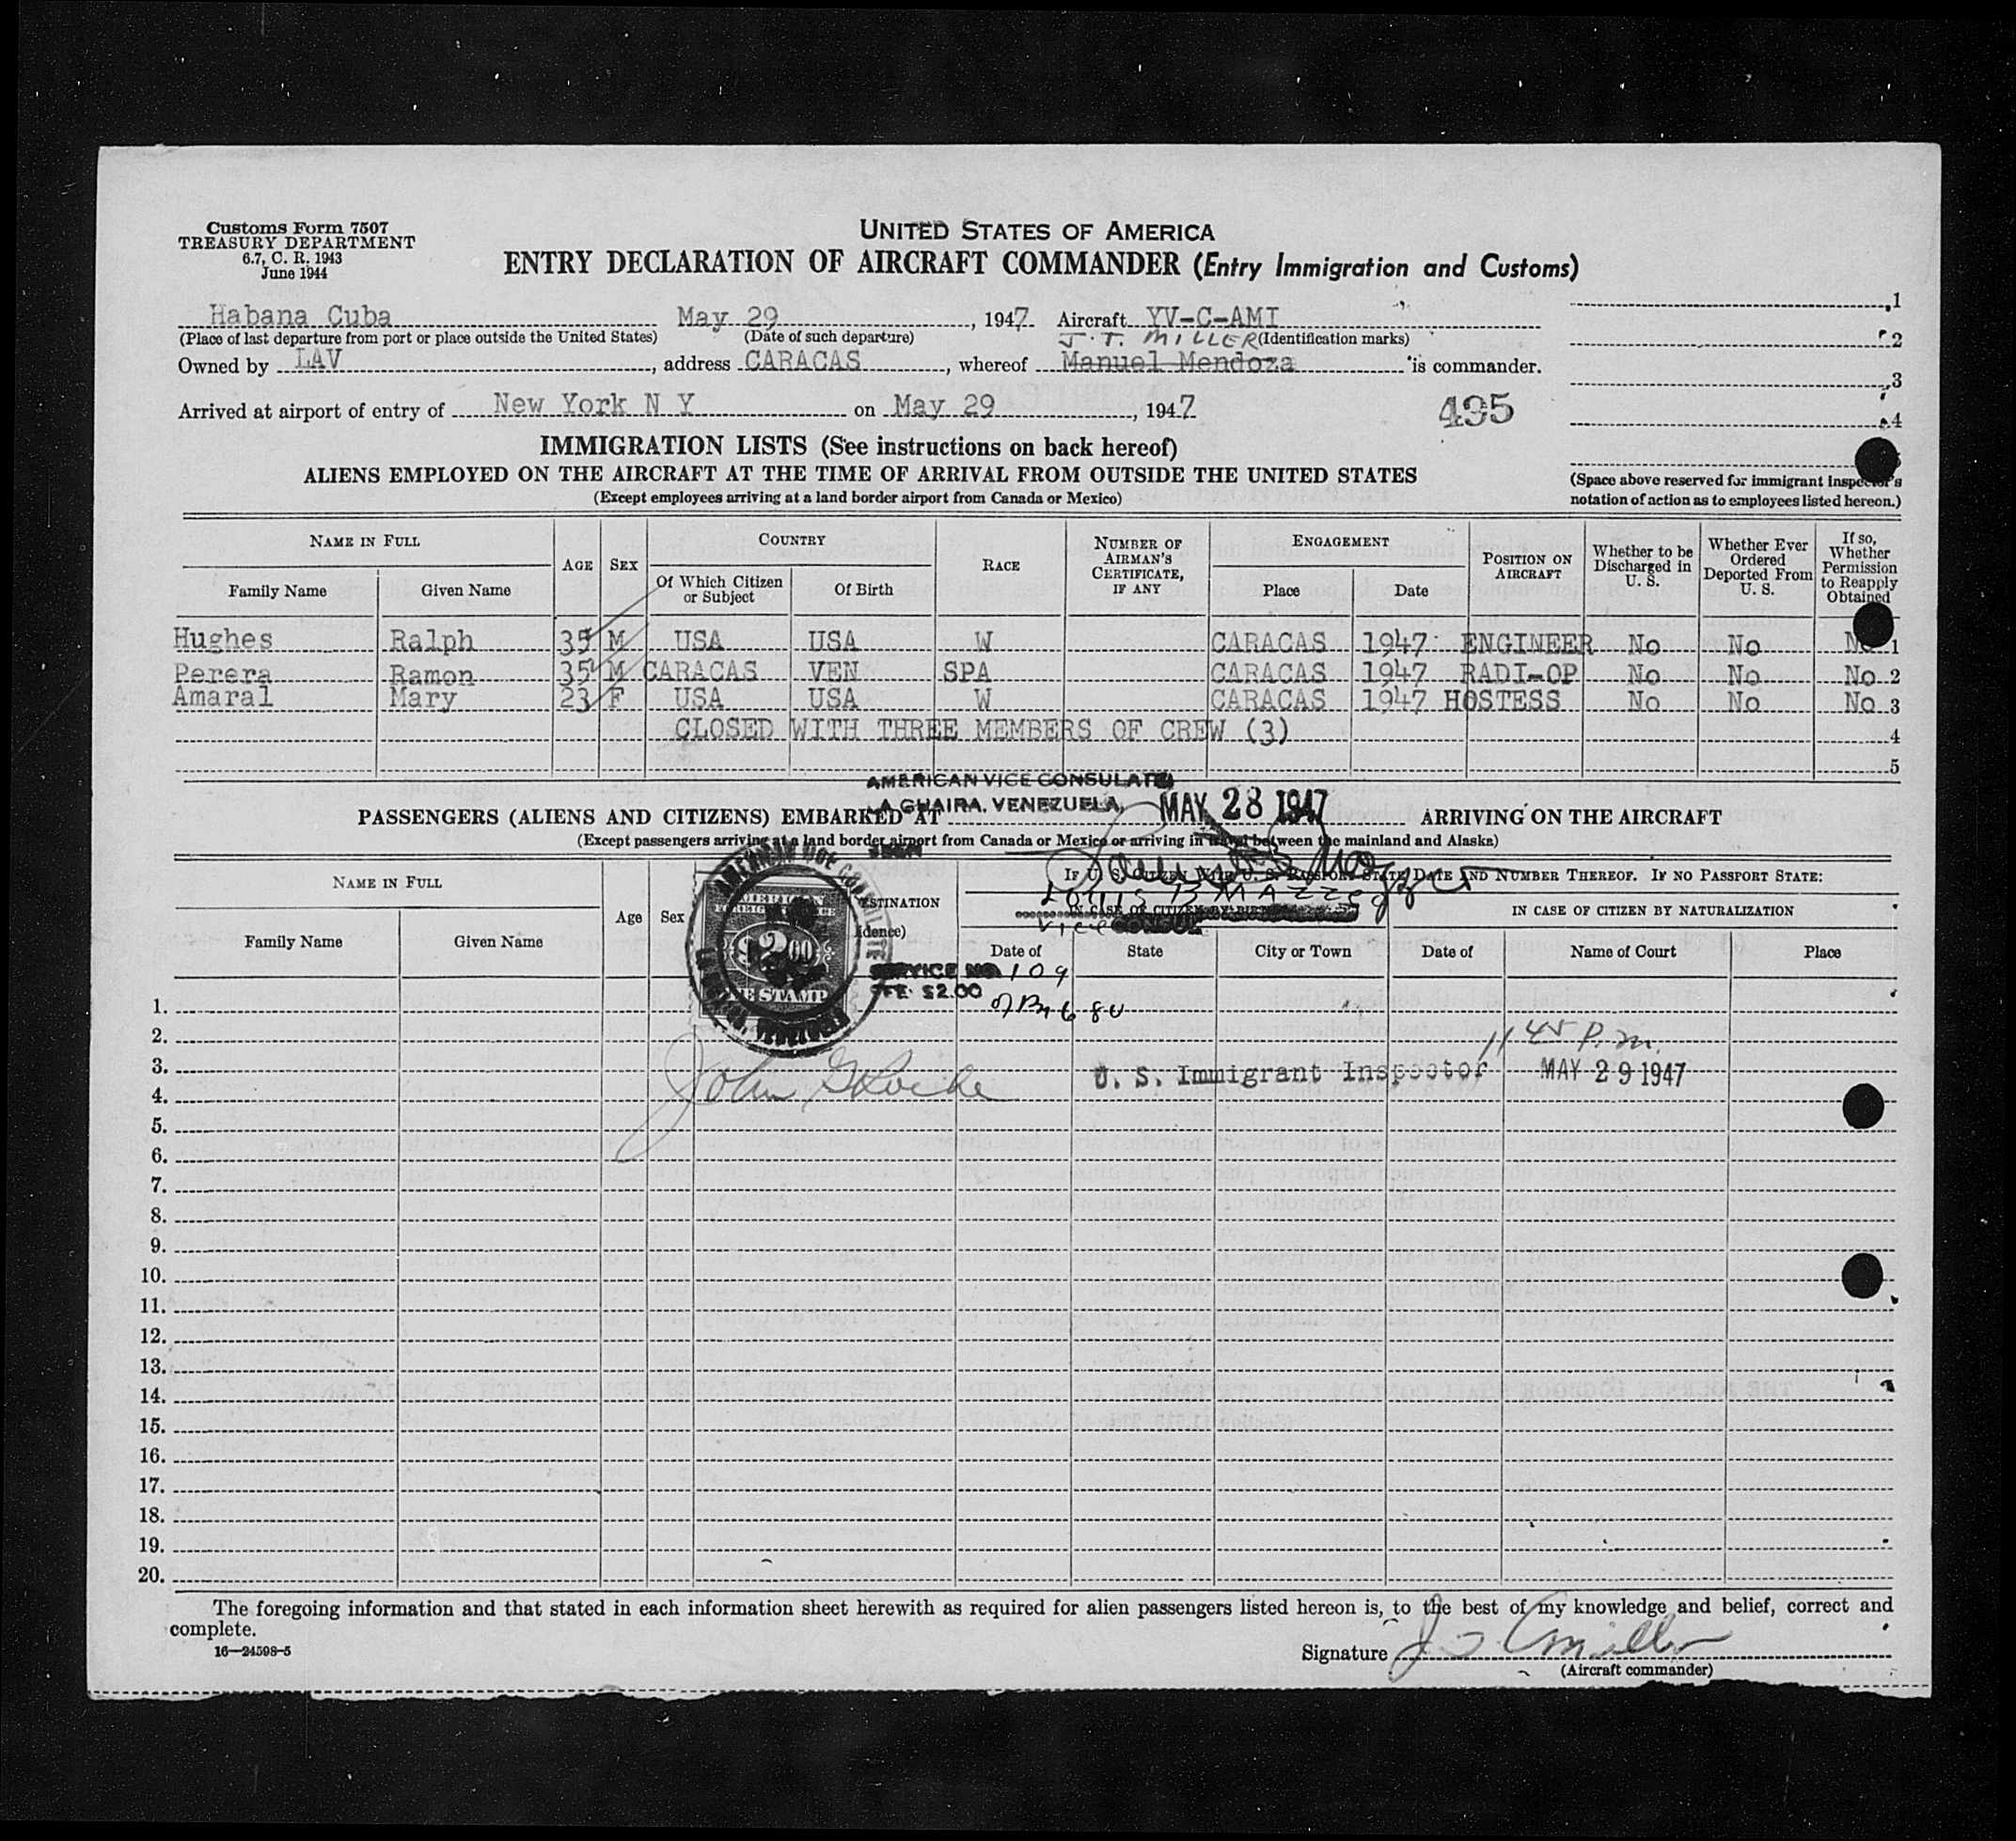 Customs Form 7507
TREASURY DEPARTMENT
6.7, C. R. 1943
June 1944
UNITED STATES OF AMERICA
ENTRY DECLARATION OF AIRCRAFT COMMANDER (Entry Immigration and Customs)
Habana Cuba May 29, 1947 Aircraft YV-C-AMI
(Place of last departure from port or place outside the United States) (Date of such departure) J. T. MILLER (Identification marks)
Owned by LAV, address CARACAS, whereof Manuel Mendoza is commander.
Arrived at airport of entry of New York N Y on May 29, 1947 495
1
2
3
4
IMMIGRATION LISTS (See instructions on back hereof)
ALIENS EMPLOYED ON THE AIRCRAFT AT THE TIME OF ARRIVAL FROM OUTSIDE THE UNITED STATES
(Except employees arriving at a land border airport from Canada or Mexico)
(Space above reserved for immigrant inspector's
notation of action as to employees listed hereon.)
NAME IN FULL AGE SEX COUNTRY RACE NUMBER OF AIRMAN'S CERTIFICATE, IF ANY ENGAGEMENT POSITION ON AIRCRAFT Whether to be Discharged in U. S. Whether Ever Ordered Deported From U. S. If so, Whether Permission to Reapply Obtained
Family Name Given Name Of Which Citizen or Subject Of Birth Place Date
Hughes Ralph 35 M USA USA W CARACAS 1947 ENGINEER No No No 1
Perera Ramon 35 M CARACAS VEN SPA CARACAS 1947 RADI-OP No No No 2
Amaral Mary 23 F USA USA W CARACAS 1947 HOSTESS No No No 3
CLOSED WITH THREE MEMBERS OF CREW (3) 4
5
AMERICAN VICE CONSULATE
LA GUAIRA, VENEZUELA, MAY 28 1947
PASSENGERS (ALIENS AND CITIZENS) EMBARKED AT ARRIVING ON THE AIRCRAFT
(Except passengers arriving at a land border airport from Canada or Mexico or arriving in travel between the mainland and Alaska)
NAME IN FULL Age Sex DESTINATION IF U. S. CITIZEN WITH U. S. PASSPORT STATE DATE AND NUMBER THEREOF. IF NO PASSPORT STATE:
IN CASE OF CITIZEN BY BIRTH IN CASE OF CITIZEN BY NATURALIZATION
Vice CONSUL
Family Name Given Name Date of State City or Town Date of Name of Court Place
$2.00
FEE STAMP
SERVICE NO. 109
FEE $2.00
1.
2. 11 45 P.m.
3. U. S. Immigrant Inspector MAY 29 1947
4.
5.
6.
7.
8.
9.
10.
11.
12.
13.
14.
15.
16.
17.
18.
19.
20.
The foregoing information and that stated in each information sheet herewith as required for alien passengers listed hereon is, to the best of my knowledge and belief, correct and
complete.
16—24598-5
Signature J T Miller
(Aircraft commander)